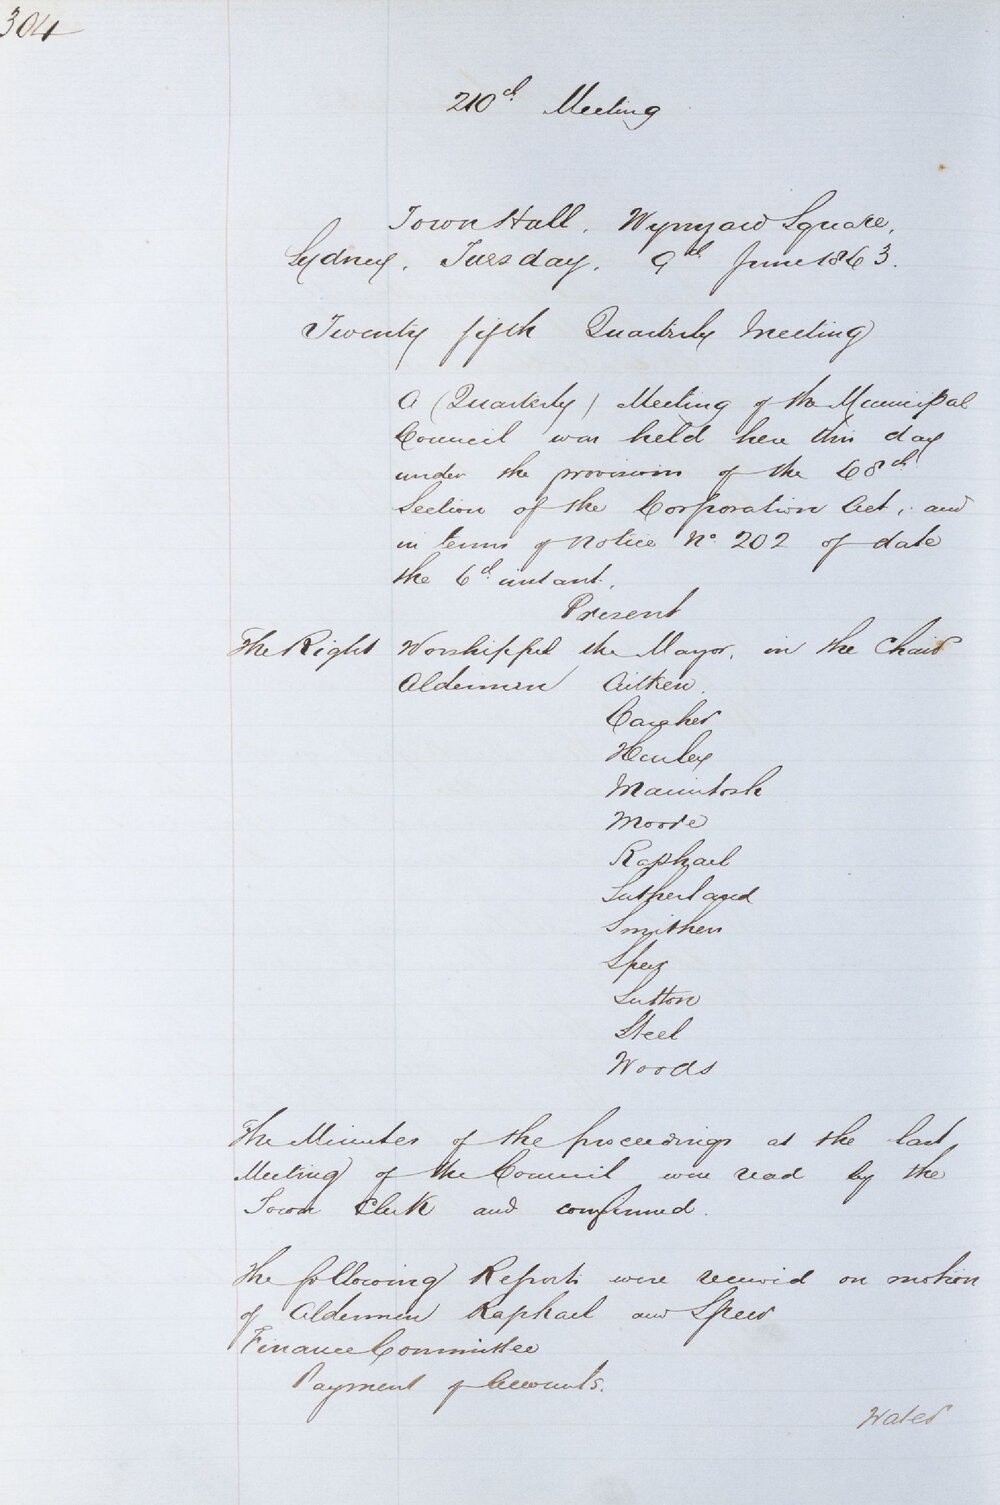 304
210th Meeting
Town Hall, Wynyard Square,
Sydney, Tuesday, 9th June 1863.
Twenty fifth Quarterly Meeting
A (Quarterly) Meeting of the Municipal
Council was held here this day
under the provisions of the 68th
Section of the Corporation Act, and
in terms of notice No. 202 of date
the 6th instant,
Present
The Right Worshipful the Mayor, in the Chair
Aldermen Aitken.
Caraher
Hanley
Macintosh
Moore
Raphael
Sutherland
Smithers
Speer
Sutton
Steel
Woods
The Minutes of the proceedings at the last
Meeting of the Council were read by the
Town Clerk and confirmed.
The following Reports were received on motion
of Aldermen Raphael and Speer
Finance Committee
Payment of Accounts.
Water